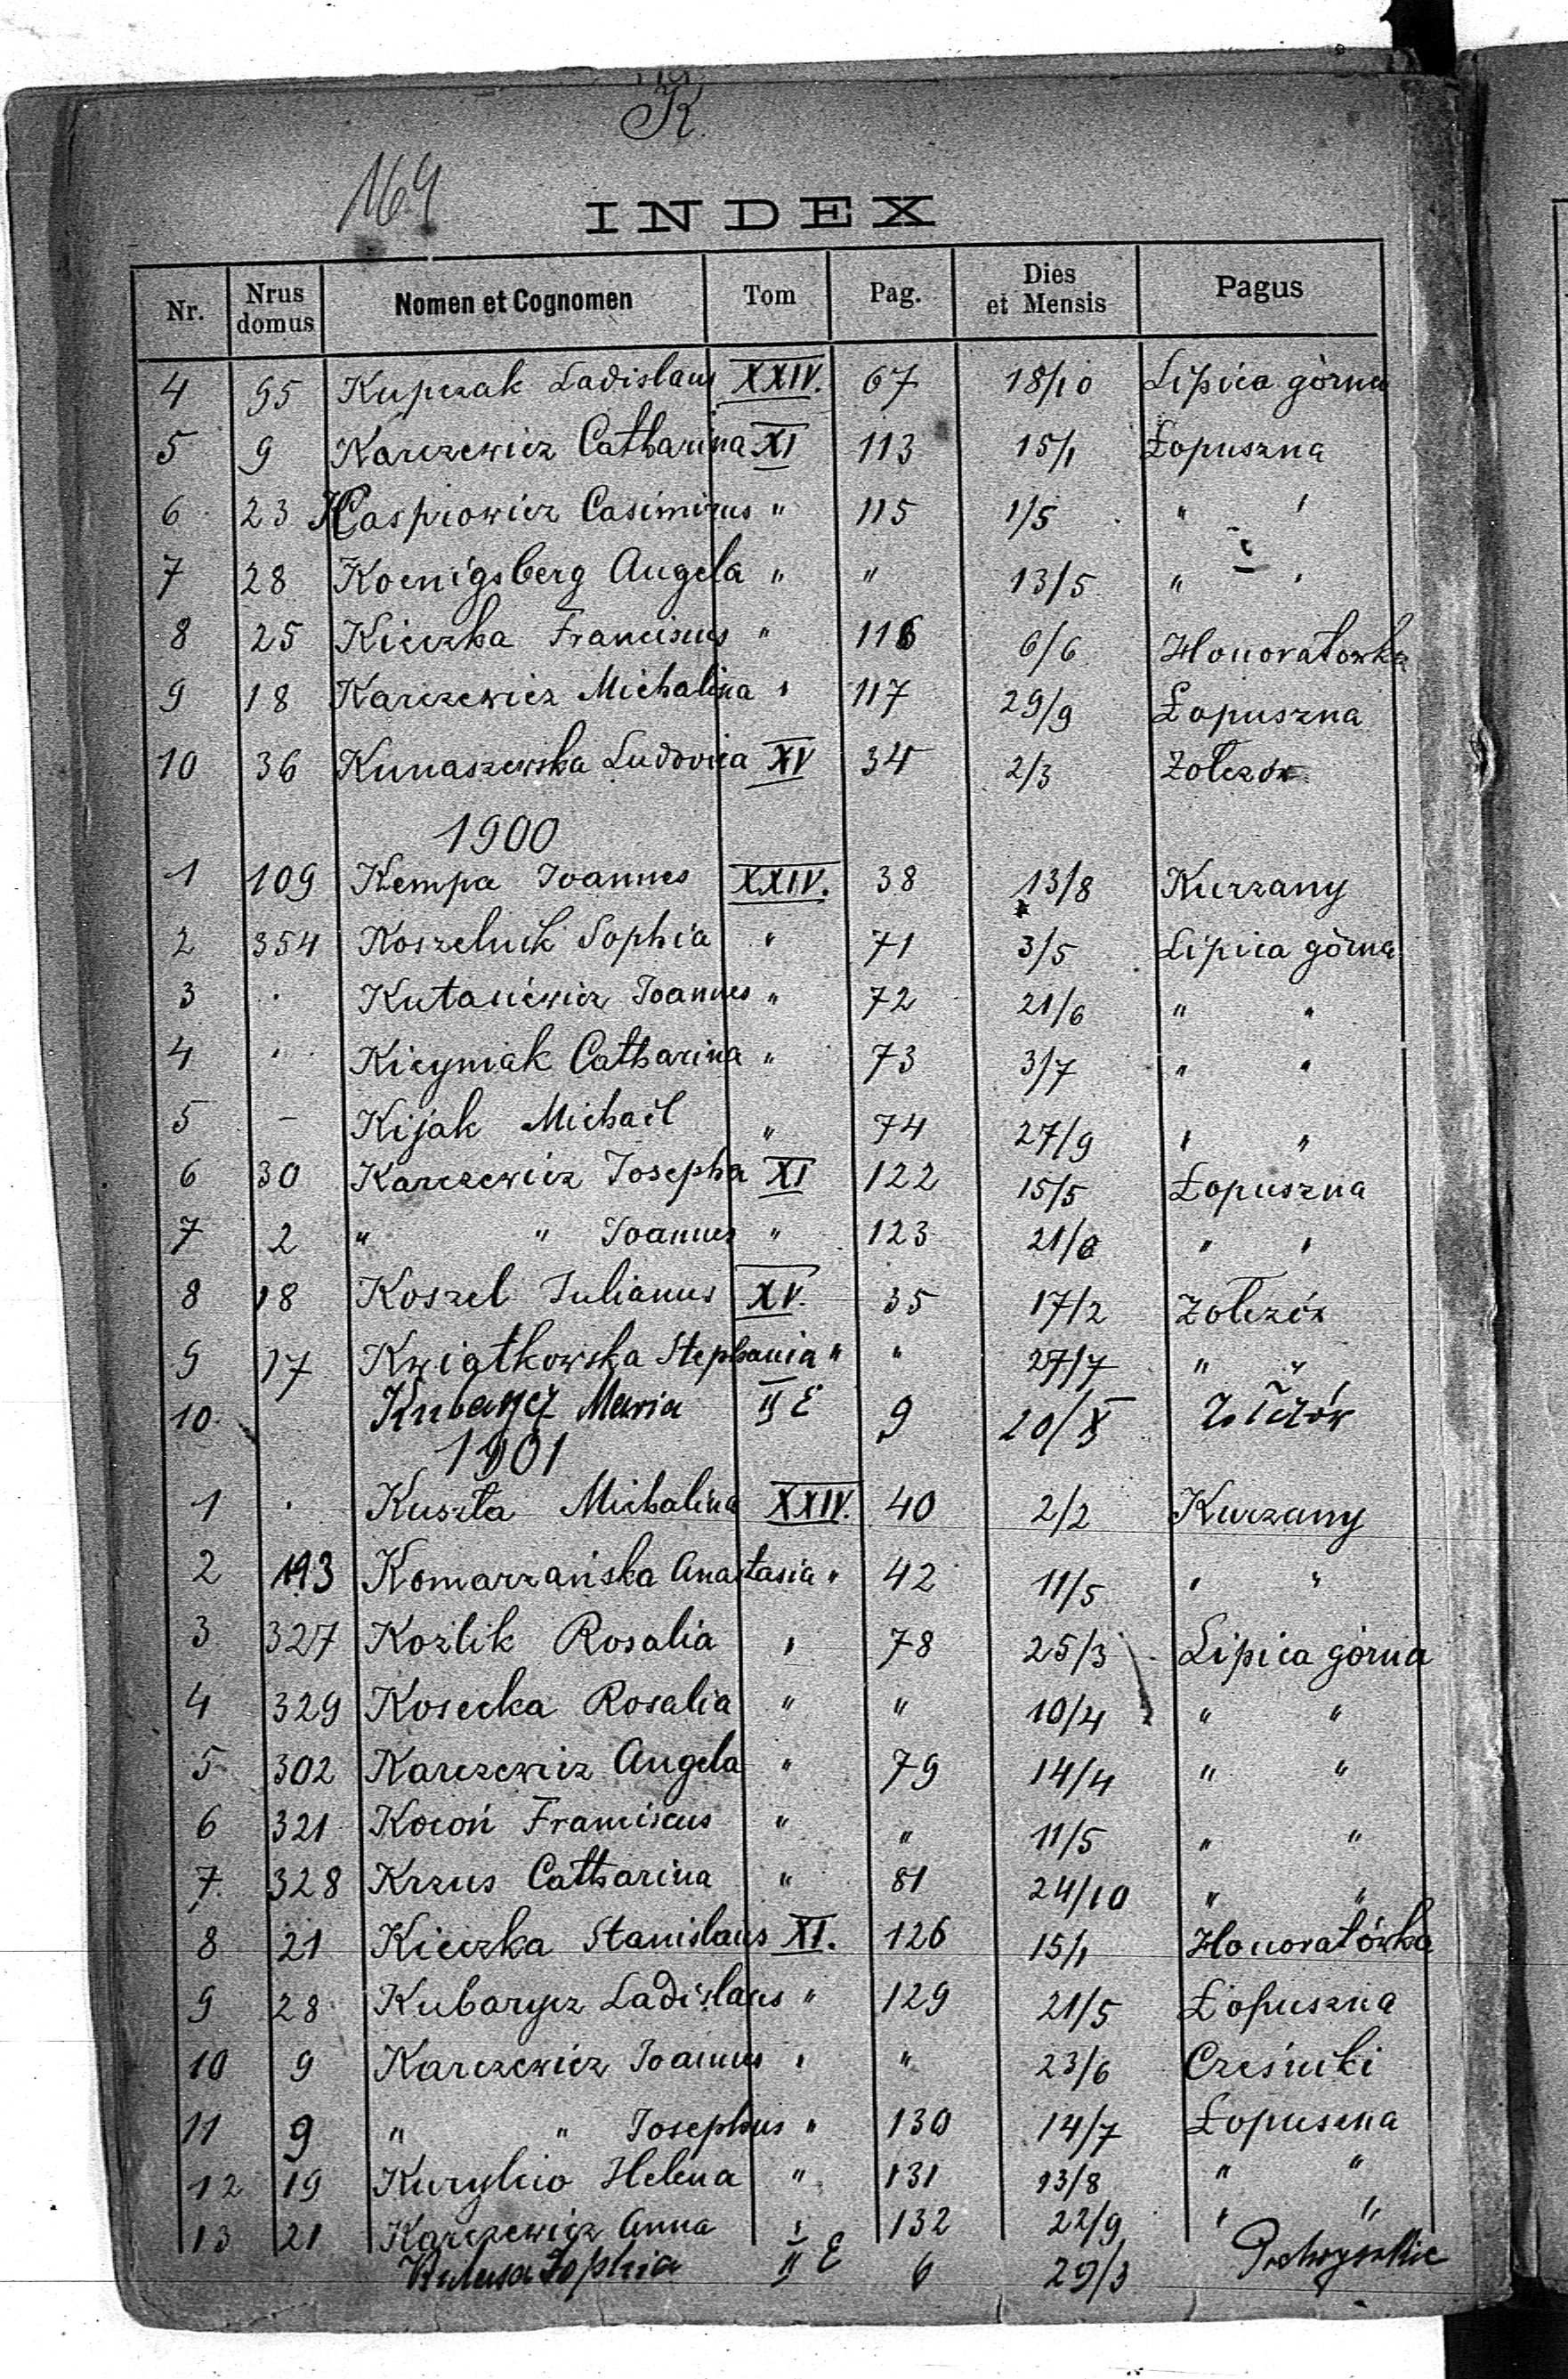 K.
164
INDEX
Nr. Nrus domus Nomen et Cognomen Tom Pag. Dies et Mensis Pagus
4 95 Kupczak Ladislaus XXIV. 67 18/10 Lipica górna
5 9 Karczewicz Catharina XI 113 15/1 Łopuszna
6 23 Kasprowicz Casimirus " 115 1/5 " "
7 28 Koenigsberg Angela " " 13/5 " "
8 25 Kieczka Franciscus " 116 6/6 Honoratowka
9 18 Karczewicz Michalina " 117 29/9 Łopuszna
10 36 Kunaszewska Ludovica XV 34 2/3 Zolczów
1900
1 109 Kempa Joannes XXIV. 38 13/8 Kurzany
2 354 Koszelnik Sophia " 71 3/5 Lipica górna
3 . Kutaniewicz Joannes " 72 21/6 " "
4 " Kicyniak Catharina " 73 3/7 " "
5 - Kijak Michaël " 74 27/9 " "
6 30 Karczewicz Josepha XI 122 15/5 Łopuszna
7 2 " " Joannes " 123 21/6 " "
8 18 Koszel Julianus XV. 35 17/2 Zolczów
9 17 Kwiatkowska Stephania " " 27/7 " "
10. Kubarycz Maria II E 9 20/X Zołczów
1901
1 . Kuszta Michalina XXIV. 40 2/2 Kurzany
2 193 Komarzańska Anastasia " 42 11/5 " "
3 327 Kozlik Rosalia " 78 25/3 Lipica górna
4 329 Kosecka Rosalia " " 10/4 " "
5 302 Karczewicz Angela " 79 14/4 " "
6 321 Kocoń Franciscus " " 11/5 " "
7. 328 Krzus Catharina " 81 24/10 " "
8 21 Kieczka Stanislaus XI. 126 15/1 Honoratówka
9 28 Kubarycz Ladislaus " 129 21/5 Łopuszna
10 9 Karczewicz Joannes " " 23/6 Cześniki
11 9 " " Josephus " 130 14/7 Łopuszna
12 19 Kuryłcio Helena " 131 13/8 " "
13 21 Karczewicz Anna " 132 22/9 " "
Sophia II E 6 29/3